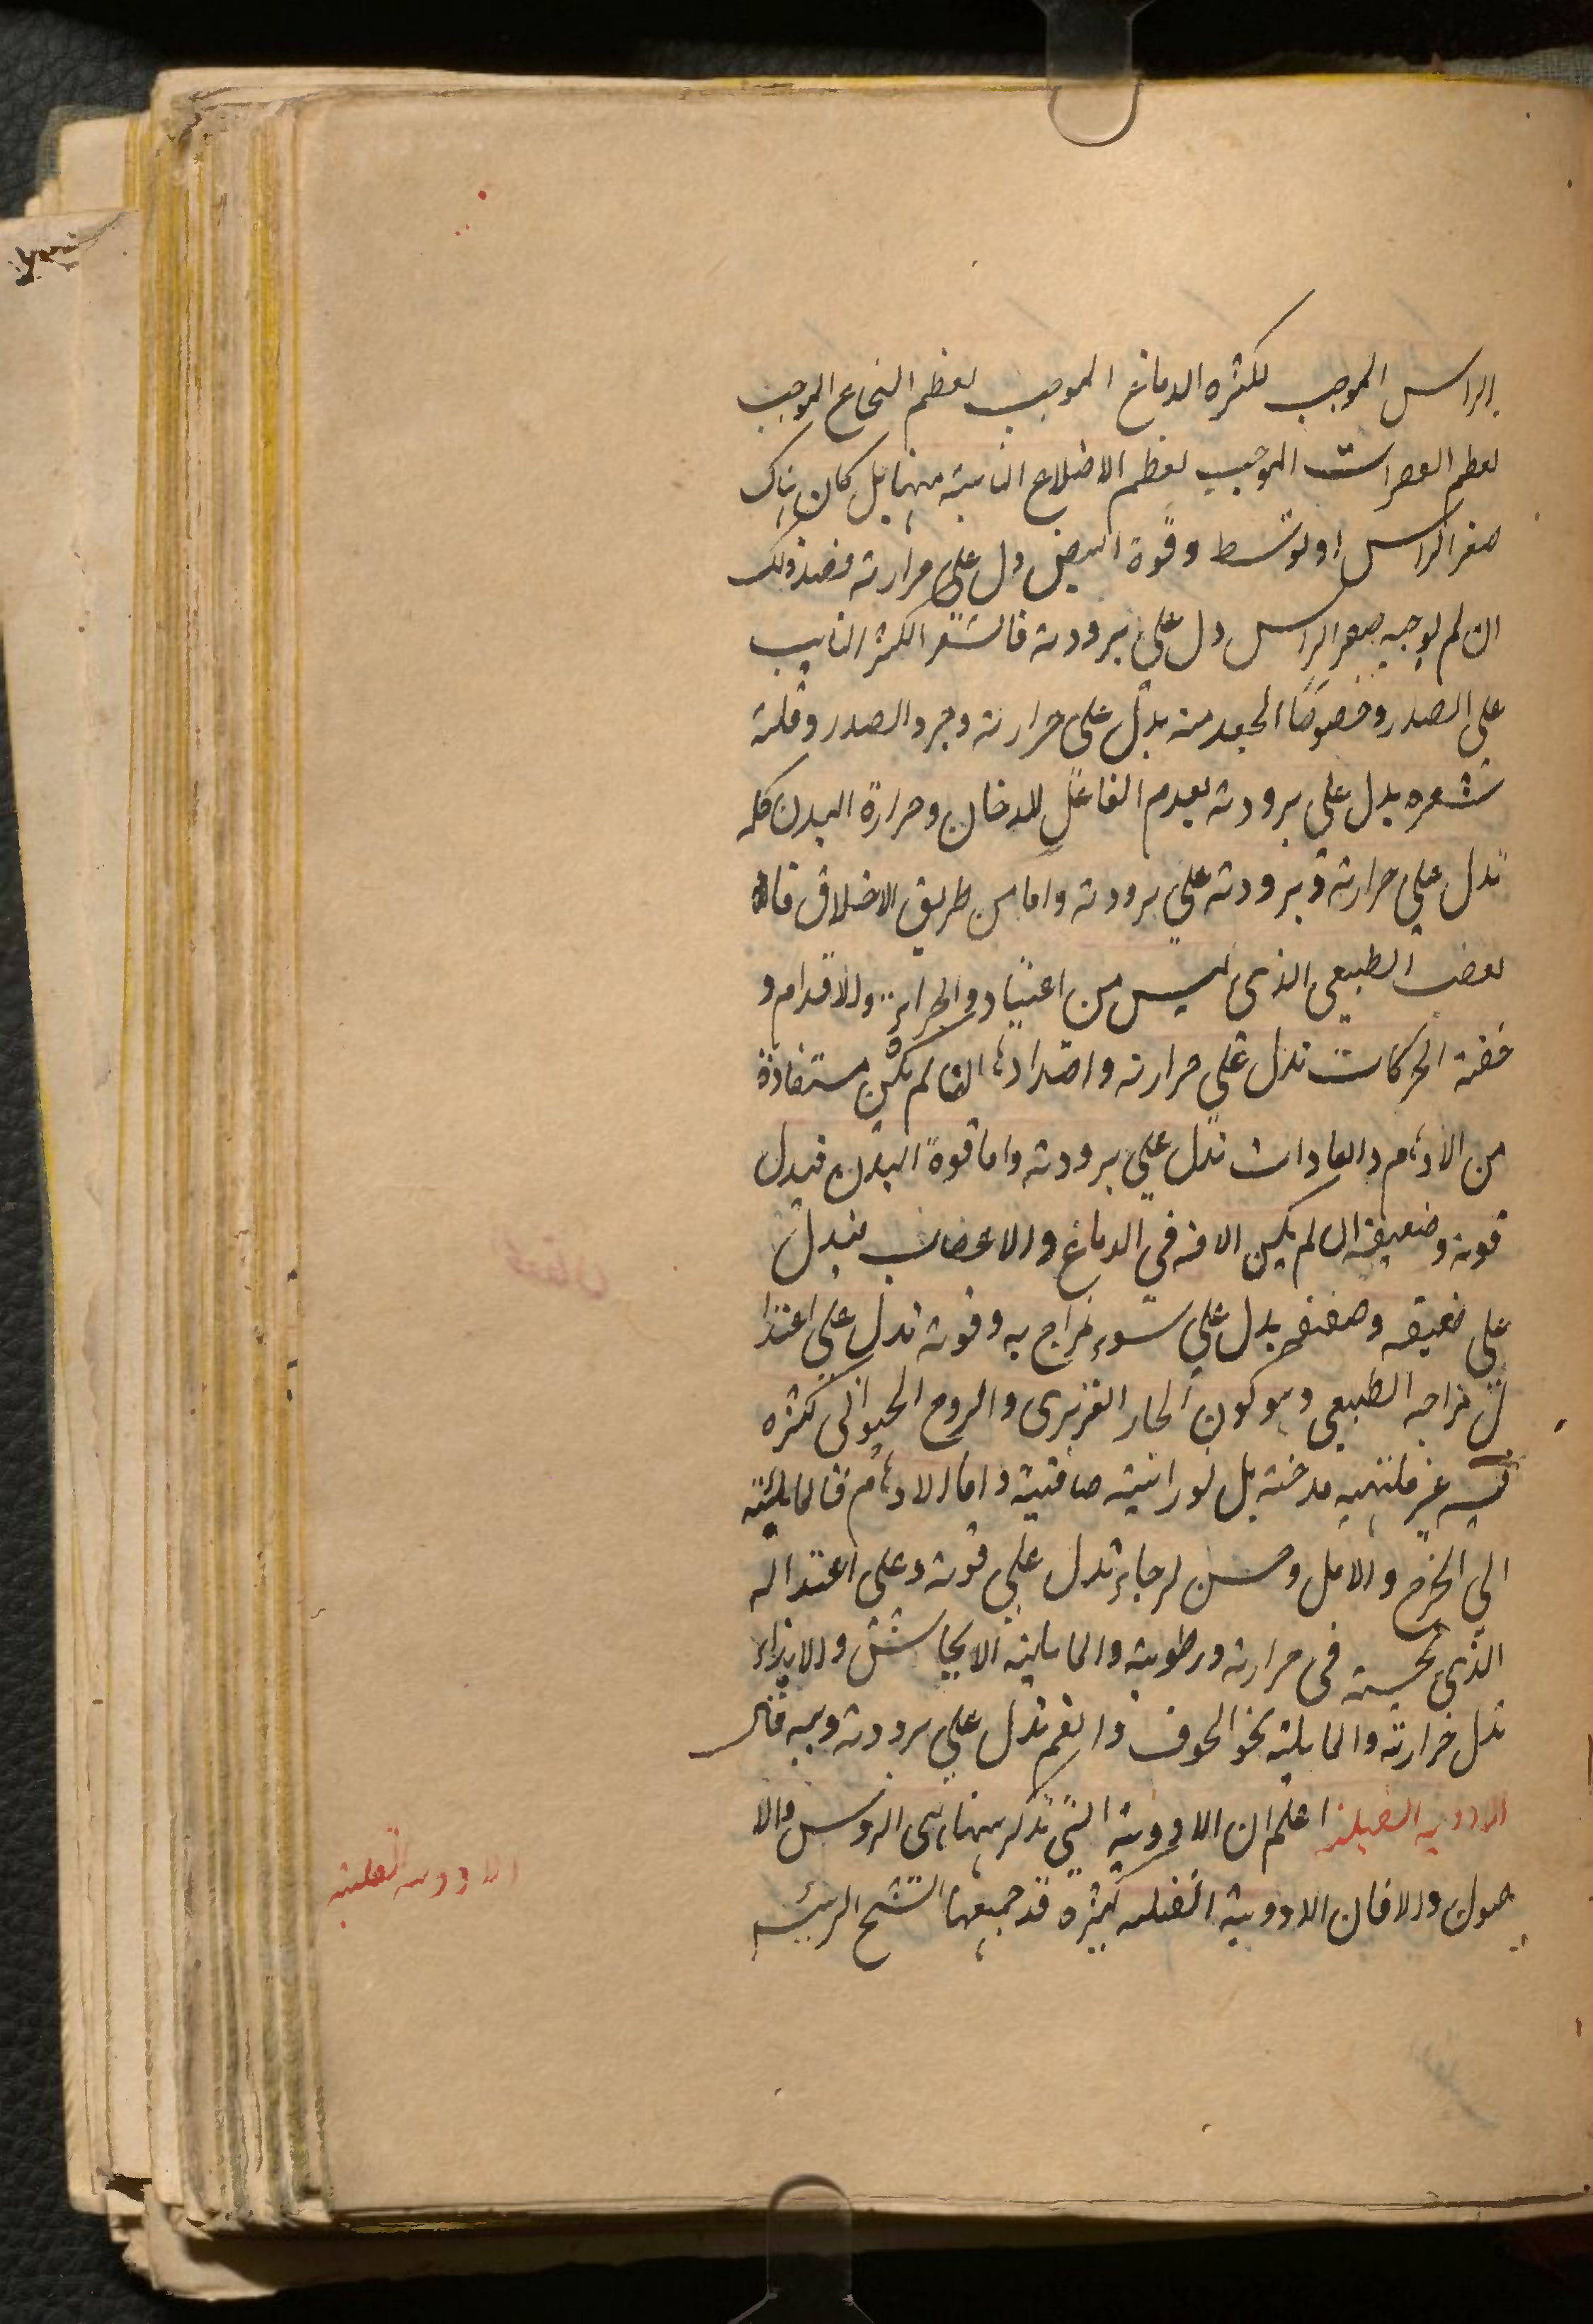 الراس الموجب لكثره الدماغ الموجب لعظم النخاع الموجب
لعظم الفقرات الموجب لعظم الاضلاع النابتة منها بل كان هناك
صغر الراس او توسط وقوة النبض دل على حرارته وضد ذلك
ان لم يوجبه صغر الراس دل على برودته فالشعر الكثير النابت
على الصدر وخصوصا الجعد منه يدل على حرارته وجرد الصدر وقلته
شعره يدل على برودته لعدم الفاعل للدخان وحرارة البدن كله
تدل على حرارته وبرودته على برودته واما من طريق الاخلاق فان
لغضب الطبيعي الذى ليس من اعتياد والجراءة والاقدام و
خفة الحركات تدل على حرارته واضدادها ان لم تكن مستفادة
من الاوهام والعادات تدل على برودته واما قوة البدن فيدل
قوته وضعيفة ان لم يكن الافة في الدماغ والاعضاب فيدل
على ضعيفه وضعفه يدل على سوء مزاج به وقوته تدل على اعتدا
ل مزاجه الطبيعى وهو كون الحار الغريزى والروح الحيوانى كثره
فيه غير ملتهبه مدخنة بل نورانية صافية واما الاوهام فالمايلة
الى الفرح والامل وحسن لرجاء تدل على قوته وعلى اعتداله
الذى بحسبه فى حرارته ورطوبته والمايلة الايحاش والايذاء
تدل حرارته والمايلة نحو الخوف والغم تدل على برودته ويبسه قال
الادوية القلبية اعلم ان الادوية التي تذكر ههنا هى الروس والا
صول والا فان الادوية القلبية كثيرة قد جمعها الشيخ الرئيس
الادوية القلبية